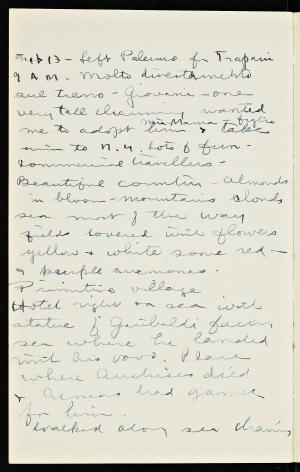 Feb 13 - Left Palermo for Trapani
9 A.M. Molto divertimento
sul treno - Giovani - one
very tall charming wanted
mia Mama - figlio
me to adopt him & take
him to N.Y. Lots of fun -
commercial travellers -
Beautiful country - almonds
in bloom - mountains clouds
sea most of the way
fields covered with flowers
yellow & white some red -
& purple anemones.
Primitive village
Hotel right on sea with
statue of Garibaldi facing
sea where he landed
with his
Place
where Anchises died
& Aeneas had games
for him.
Walked along sea